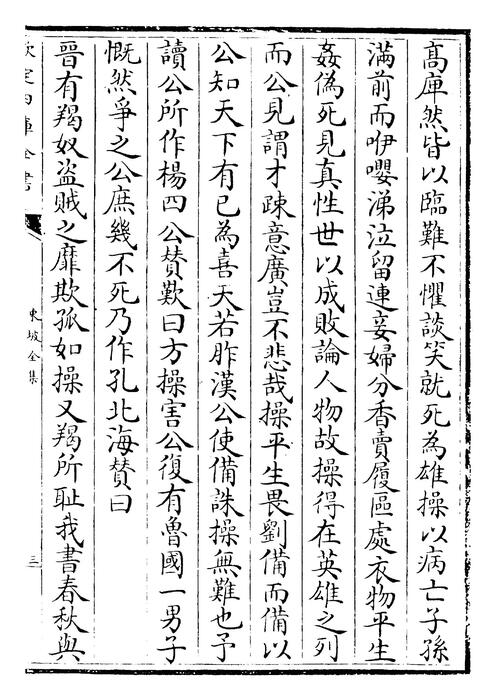 髙庳然皆以臨難不懼談笑就死為雄操以病亡子孫
滿前而咿嚶涕泣留連妾婦分香賣履區處衣物平生
姦偽死見真性世以成敗論人物故操得在英雄之列
而公見謂才疎意廣豈不悲哉操平生畏劉備而備以
公知天下有已為喜天若胙漢公使備誅操無難也予
讀公所作楊四公賛歎曰方操害公復有魯國一男子
慨然爭之公庶幾不死乃作孔北海賛曰
晉有羯奴盜賊之靡欺孤如操又羯所恥我書春秋與
欽定四庫全書
東坡全集
三